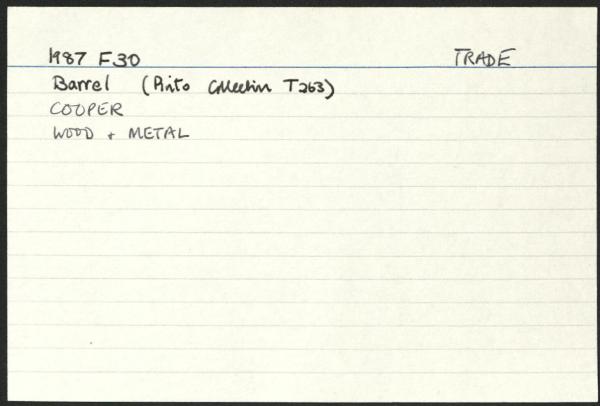 1987 F30 TRADE
Barrel (Pinto Collection T263)
COOPER
WOOD + METAL